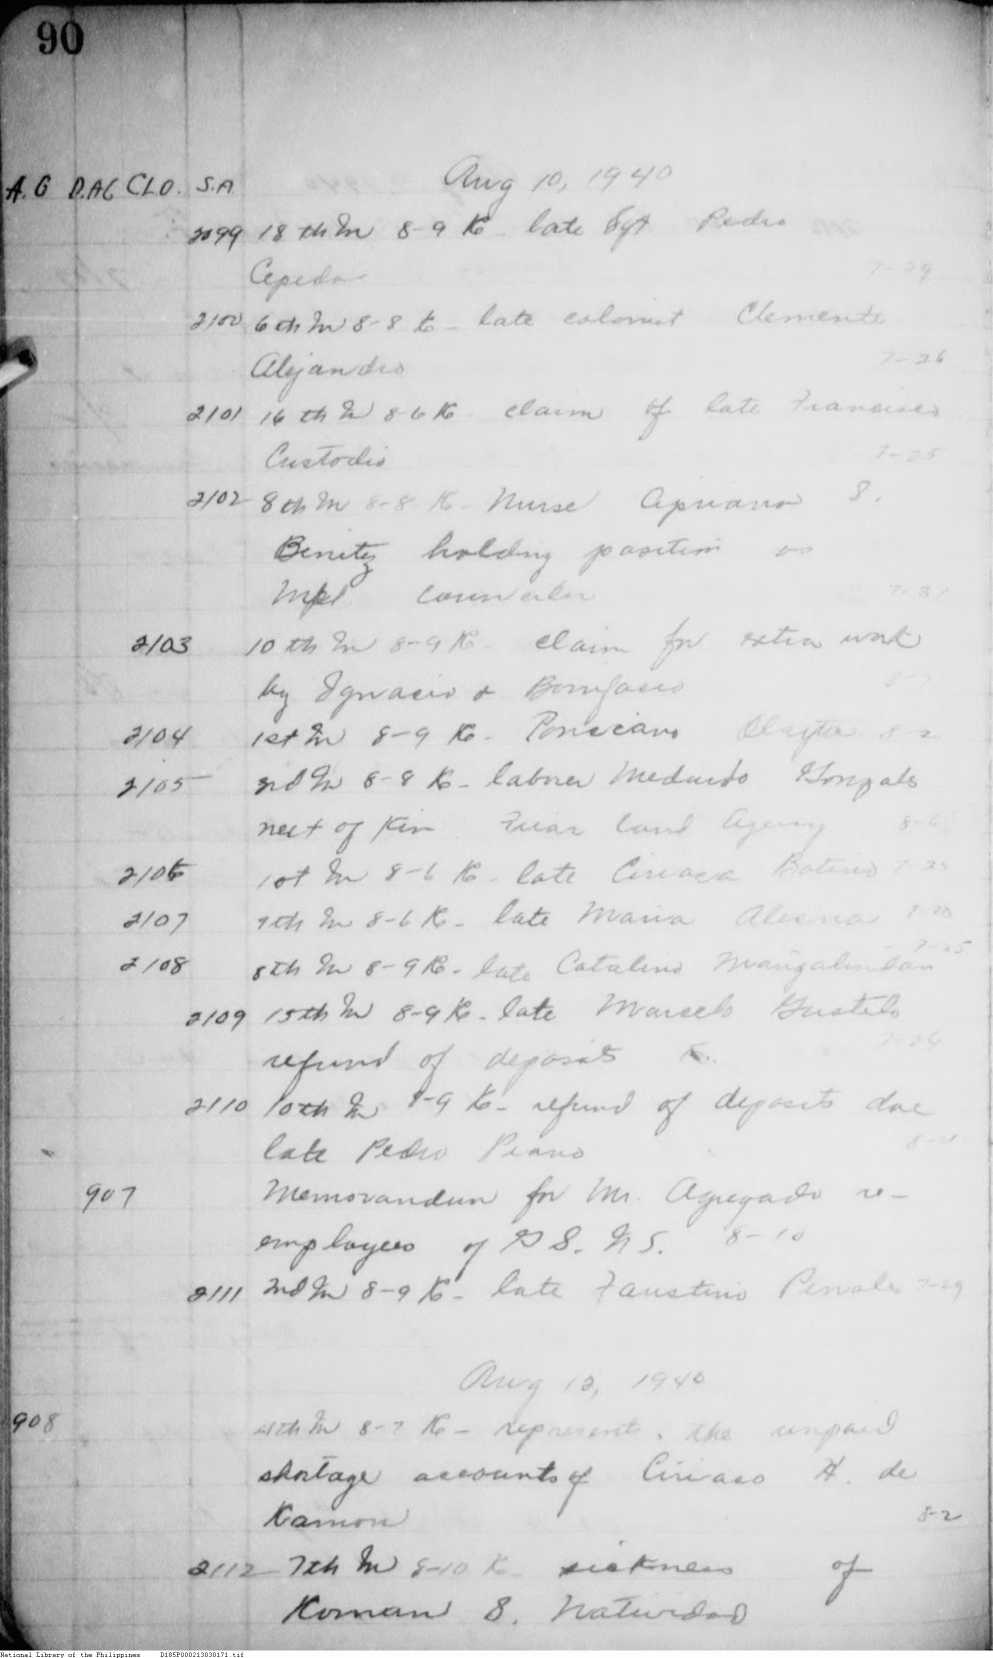 90
A.G D.AG CLO. S.A
Aug 10, 1940
2099 18th In 8-9 K- late Sgt Pedro
Cepeda 7-29
2100 6th In 8-8 K- late colonist Clemente
Alejandro 7-26
2101 16th In 8-6 K claim of late Francisco
Custodio 7-25
2102 8th In 8-8 K- Nurse Cipriano S.
Benitez holding position as
Mpl councilor 7-31
2103 10th In 8-9 K- claim for extra work
by Ignacio & Bonifacio
2104 1st In 8-9 K- Ponciano 8-2
2105 2nd In 8-8 K- laborer Medardo Gonzales
next of kin Friar Land Agency 8-6
2106 1st In 8-6 K- late Ciriaca 7-25
2107 7th In 8-6 K- late Maria
2108 8th In 8-9 K- late Catalino Mangalindan 7-25
2109 15th In 8-9 K- late Marcelo
refund of deposit
2110 10th In 8-9 K- refund of deposits due
late Pedro Piano
907 Memorandum for Mr. Agregado re-
employees of P.S. N.S. 8-10
2111 2nd In 8-9 K- late Faustino 7-29
Aug 12, 1940
908 4th In 8-7 K- represents. the unpaid
shortage accounts of Ciriaco H. de
Ramon 8-2
2112 7th In 8-10 K- sickness of
Roman S. Natividad
National Library of the Philippines D185P000213030171.tif